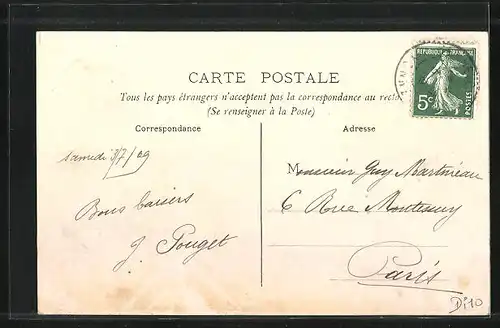 REPUBLIQUE FRANÇAISE
5c
POSTES
CARTE POSTALE
Tous les pays étrangers n'acceptent pas la correspondance au recto
(Se renseigner à la Poste)
Correspondance
Adresse
Samedi 3/7/09
Bons baisers
J. Pouget
Monsieur Guy Martineau
6 Rue Montessuy
Paris